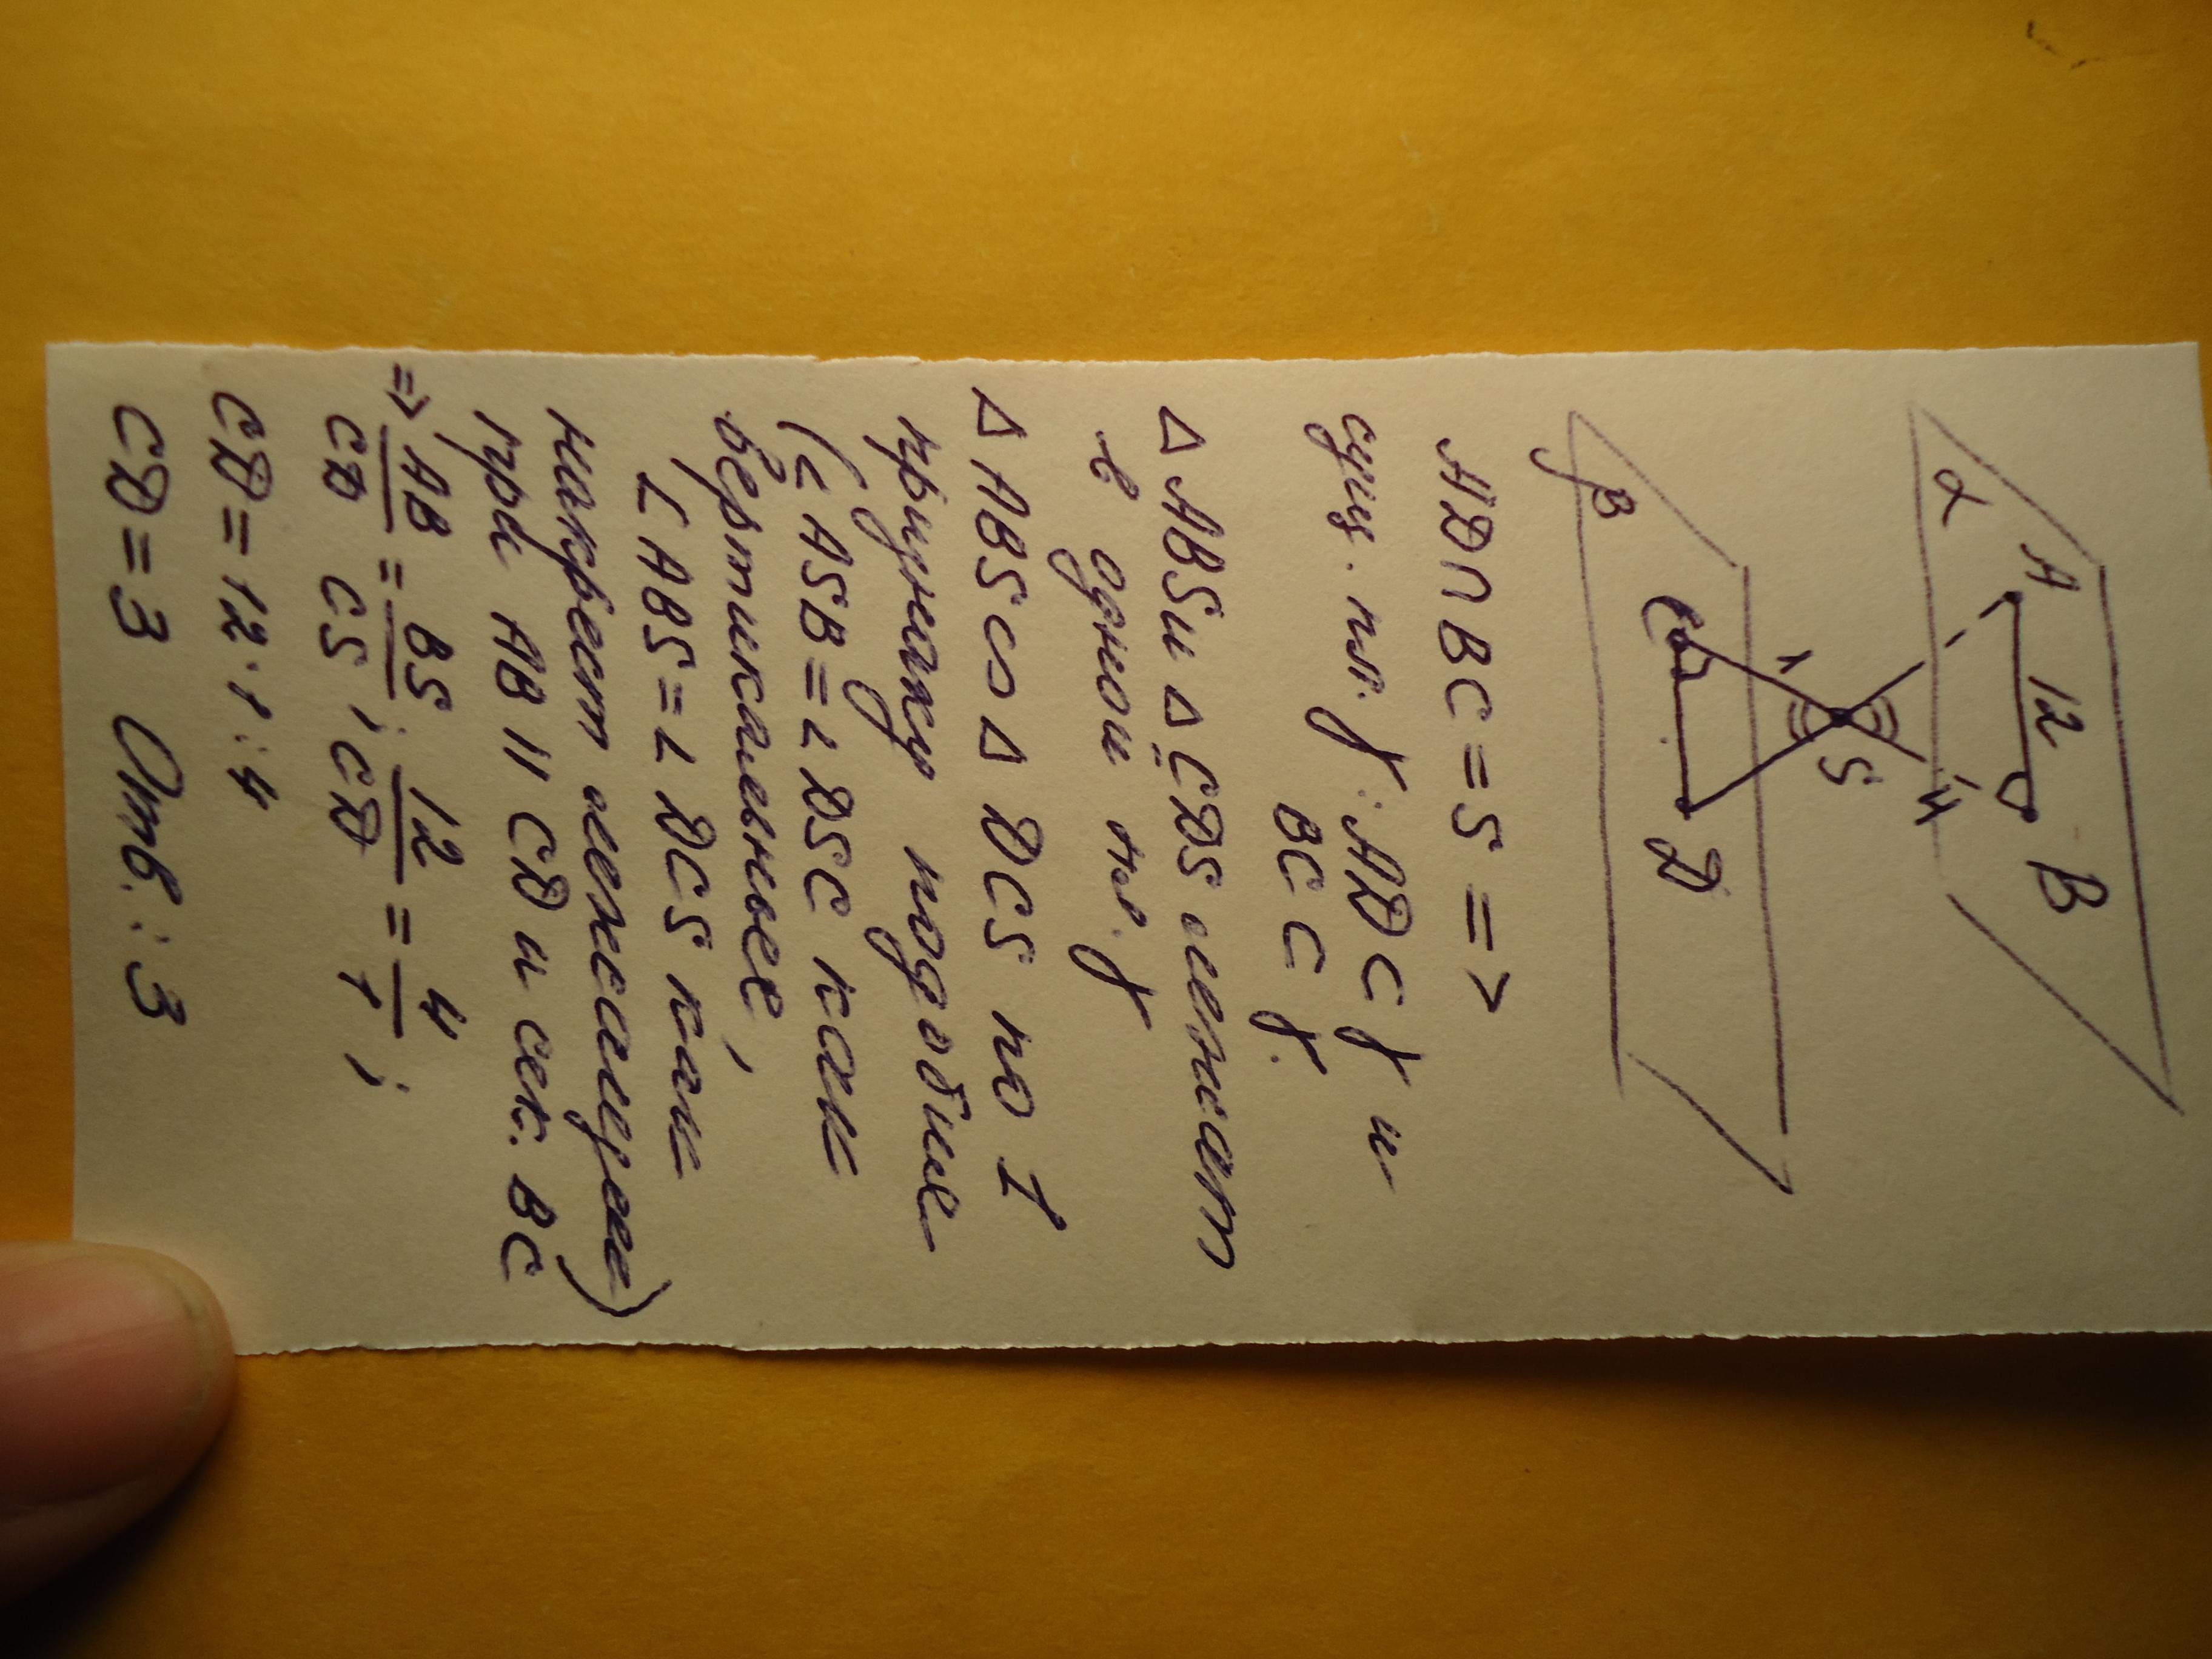 α A 12 B
4
S
1
C D
β
AD ∩ BC = S =>
сущ. пл. γ: AD ⊂ γ и
BC ⊂ γ.
Δ ABS и Δ CDS лежат
в одной пл. γ
Δ ABS ∽ Δ DCS по I
признаку подобия
(∠ ASB = ∠ DSC как
вертикальные,
∠ ABS = ∠ DCS как
накрест лежащие)
при AB || CD и сек. BC
=> AB/CD = BS/CS ; 12/CD = 4/1 ;
CD = 12·1:4
CD = 3 Отв.: 3